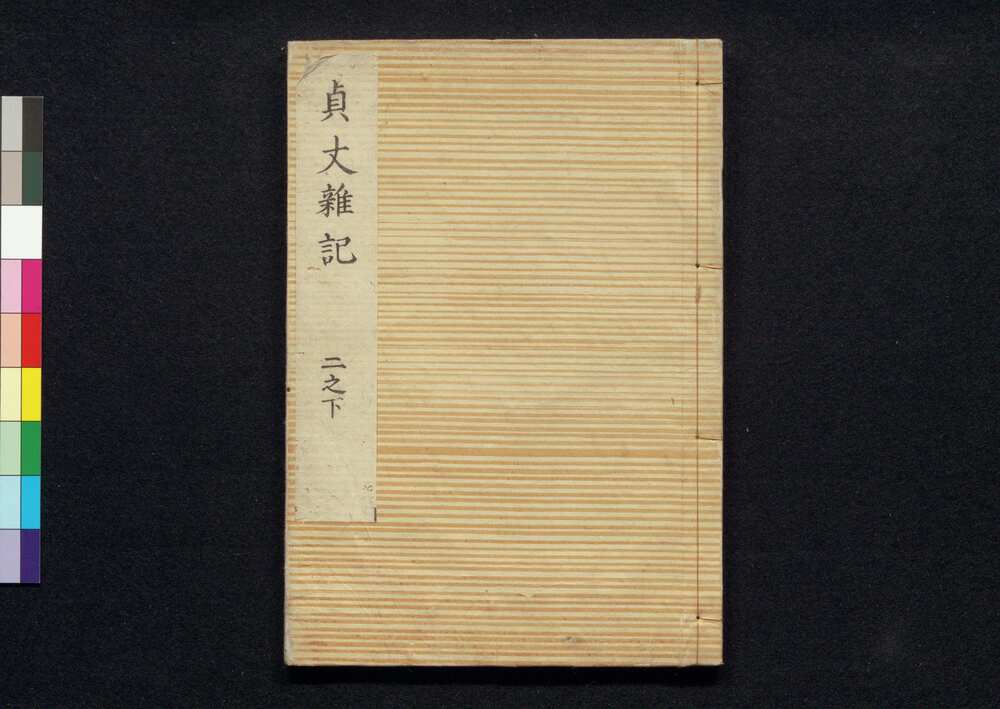 貞丈雜記
二之下